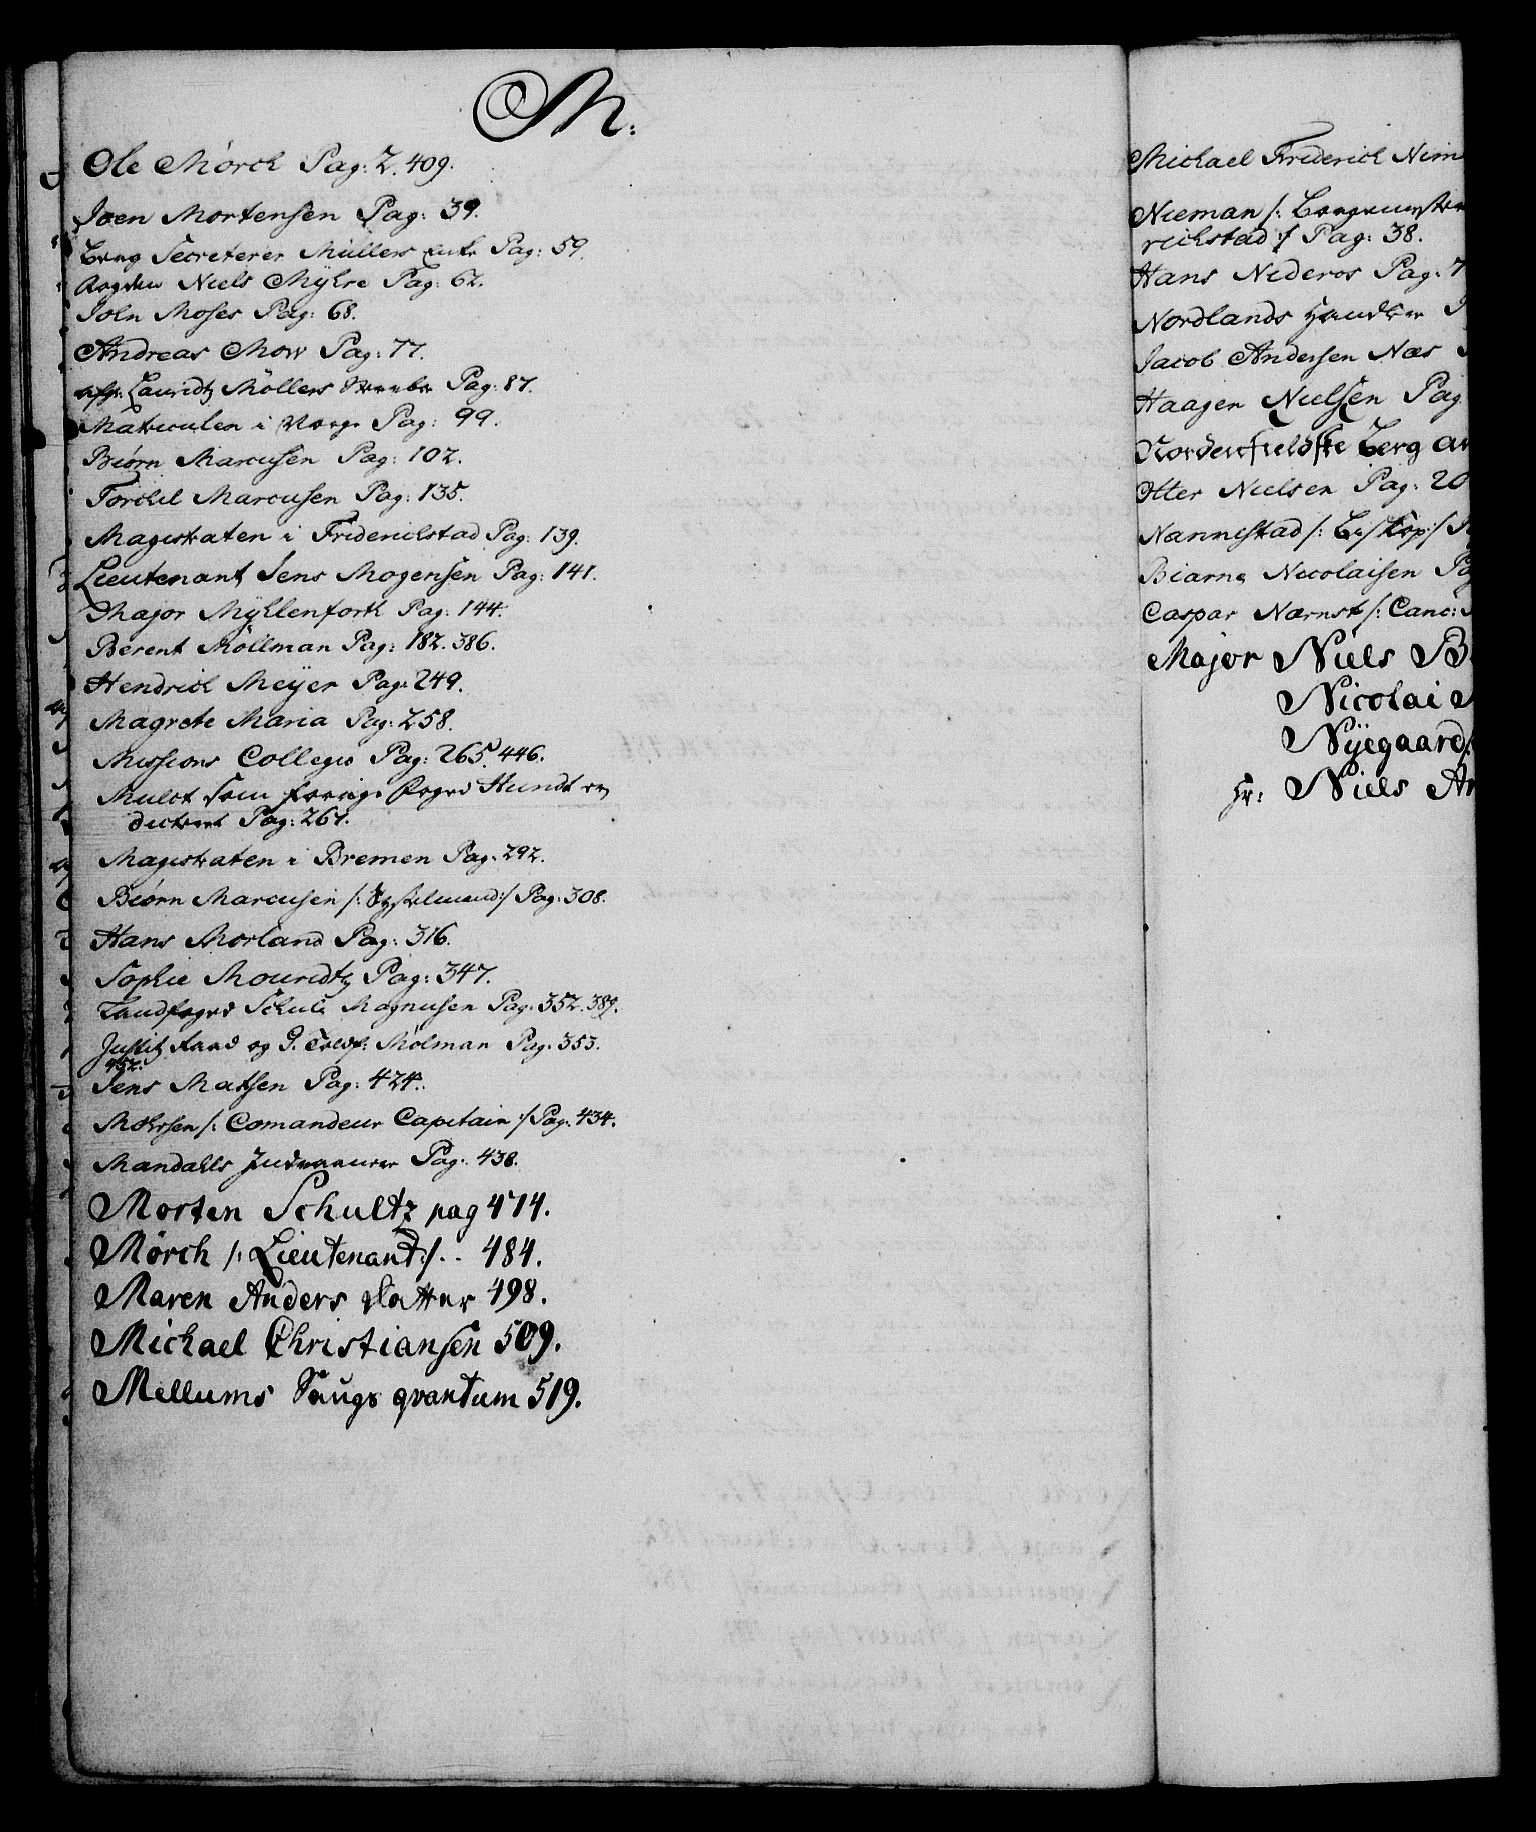 M:
Ole Mörch Pag: 2. 409.
Joen Mortensen Pag: 39.
Berg Secreterer Müllers Enke Pag: 59.
Fogden Niels Myhre Pag: 62.
John Moses Pag: 68.
Andreas Mow Pag: 77.
afg: Lauridtz Möllers Pag: 87.
Matriculen i Norge Pag: 99.
Biörn Marcusen Pag: 102.
Torchil Marcusen Pag: 135.
Magistraten i Friderichstad Pag: 139.
Lieutenant Jens Mogensen Pag: 141.
Major Myhlenforth Pag: 144.
Berent Möllman Pag: 182. 386.
Hendrich Meyer Pag: 249.
Magrete Maria Pag: 258.
Missions Collegio Pag: 265. 446.
Mulct som forrige Foged Hundt er
dicteret Pag: 267.
Magistraten i Bremen Pag: 292.
Biörn Marcusen /: Sysselmand :/ Pag: 308.
Hans Morland Pag: 316.
Sophie Mouridtz Pag: 347.
Landfoged Schule Magnusen Pag: 352. 389.
Justitz Raad og G. Toldf: Mölman Pag. 353.
452.
Jens Matsen Pag: 424.
Mohrsen /: Comandeur Capitain :/ Pag: 434.
Mandahls Indvaanere Pag: 438.
Morten Schultz pag 474.
Mörch /: Lieutenant :/ . . 484.
Maren Anders datter 498.
Michael Christiansen 509.
Mellums Saugs qvantum 519.
Michael Friderich Nim
Nieman /: Borgemester
richstad :/ Pag: 38.
Hans Nideros Pag: 7
Nordlands Handler
Jacob Andersen Næs
Haagen Nielsen Pag
Nordenfieldske Berg am
Otter Nielsen Pag: 20
Nannestad /: Biskop :/
Biarne Nicolaisen Pag
Caspar Nærnst /: Canc:
Major Niels B
Nicolai
Nyegaard /:
Hr: Niels Ar